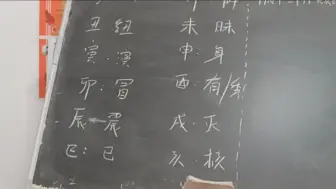 丑 纽
未 昧
寅: 演
申: 身
卯: 冒
酉: 有/
辰—震
戌. 灭
巳: 已
亥. 核